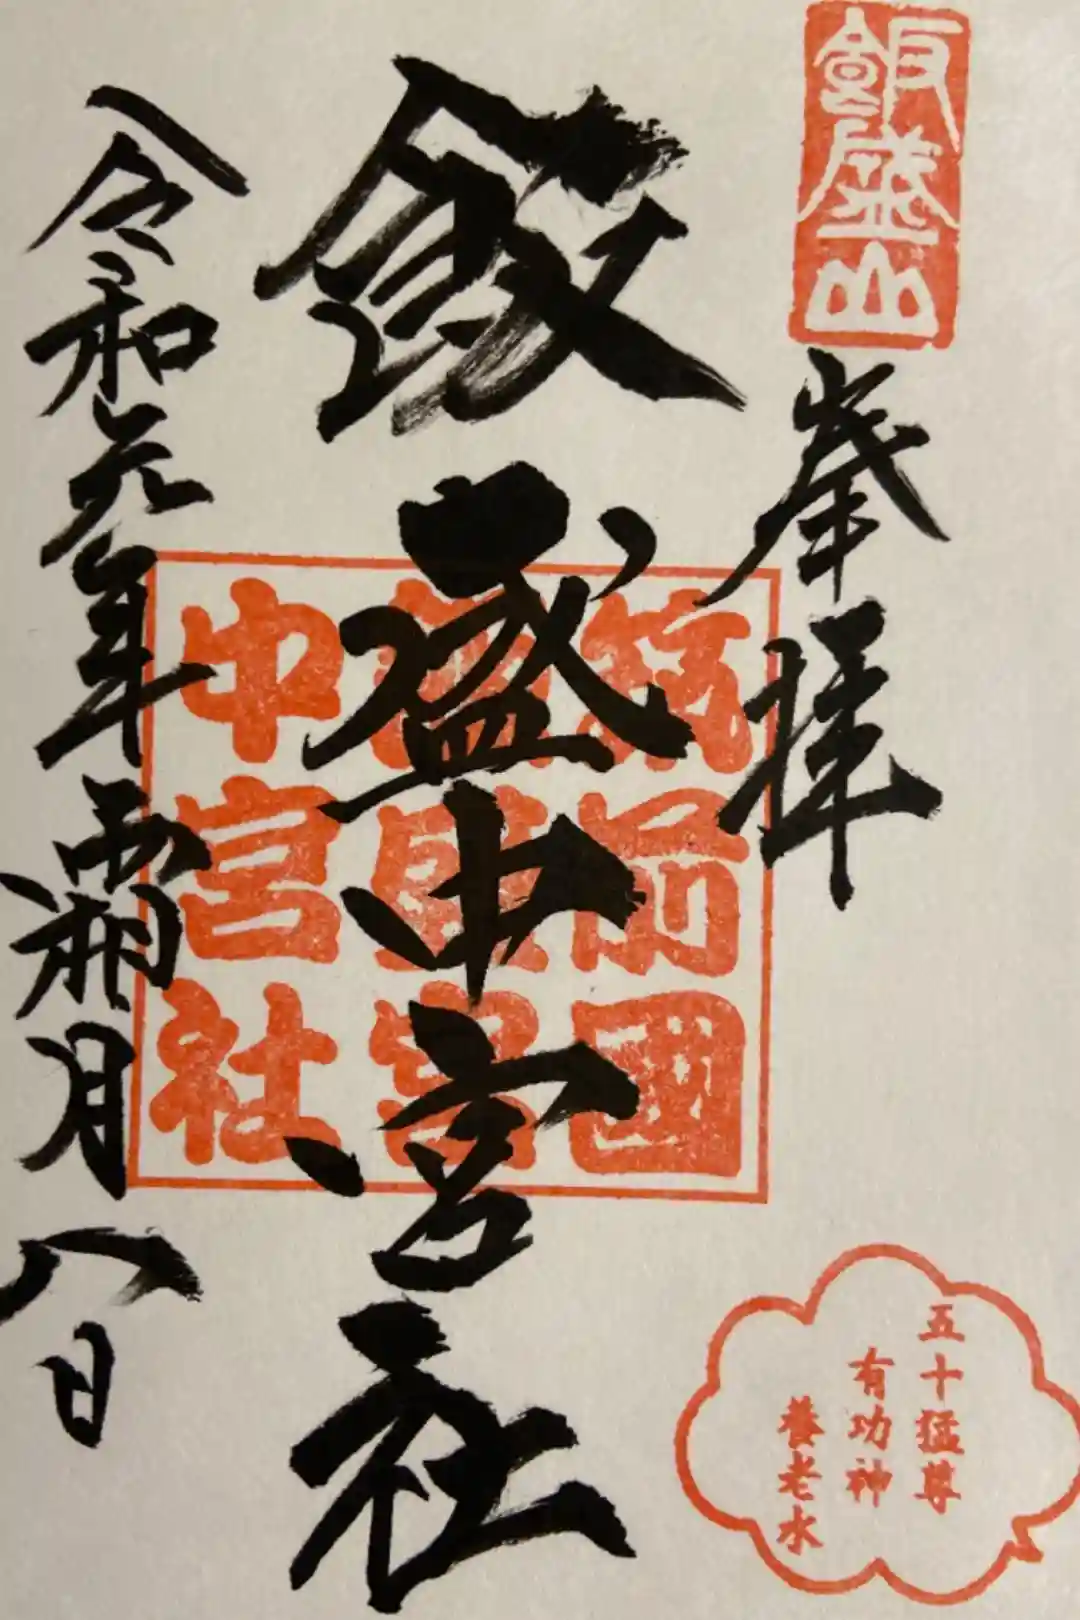 飯盛山
峯拝
飯盛中宮社
令和元年霜月八日
筑前國
飯盛宮
中宮社
五十猛尊
有功神
養老水